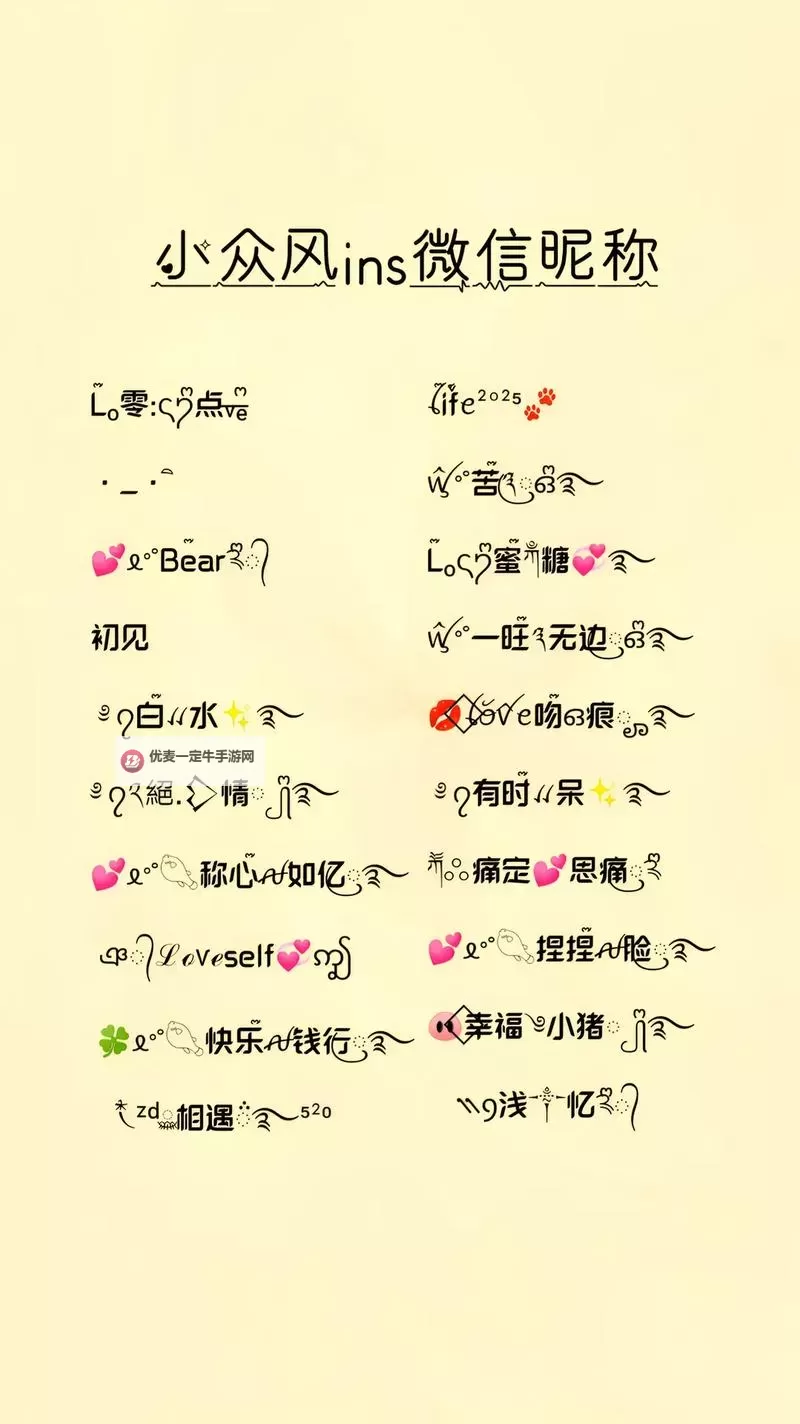 小众风ins微信昵称
L₀零:點ve
life²⁰²⁵🐾
· _ ·
ŵ°˚苦
💕ዲ°˚Bear
L₀蜜糖💞
初见
ŵ°˚一旺无边
白水✨
💋love吻痕
优麦一定牛手游网
絕.情
有时呆✨
💕ዲ°˚称心如亿
痛定💕思痛
ℒℴvℯself💞
💕ዲ°˚捏捏脸
🍀ዲ°˚快乐钱行
🐽幸福小猪
zd相遇⁵²⁰
浅忆